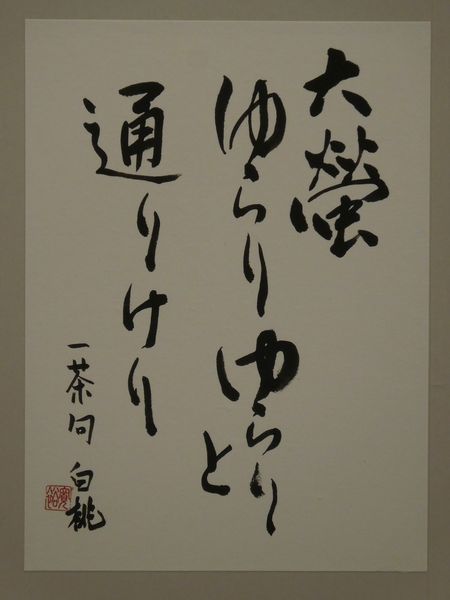 大螢
ゆらりゆらりと
通りけり
一茶句 白桃